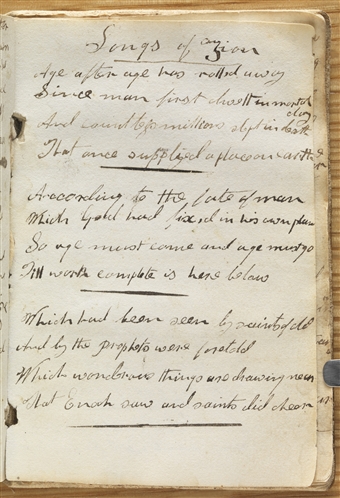 Songs of Zion
Age after age has rolled away
Since man first dwelt in mortal
clay
And countless millions slept in death
That once supplied a place on earth
According to the fate of man
Which God had fixed in his own plan
So age must come and age must go
Till work complete is here below
Which had been seen by saints of old
And by the prophets were foretold
Which wondrous things are drawing near
That Enoch saw and saints did cheer